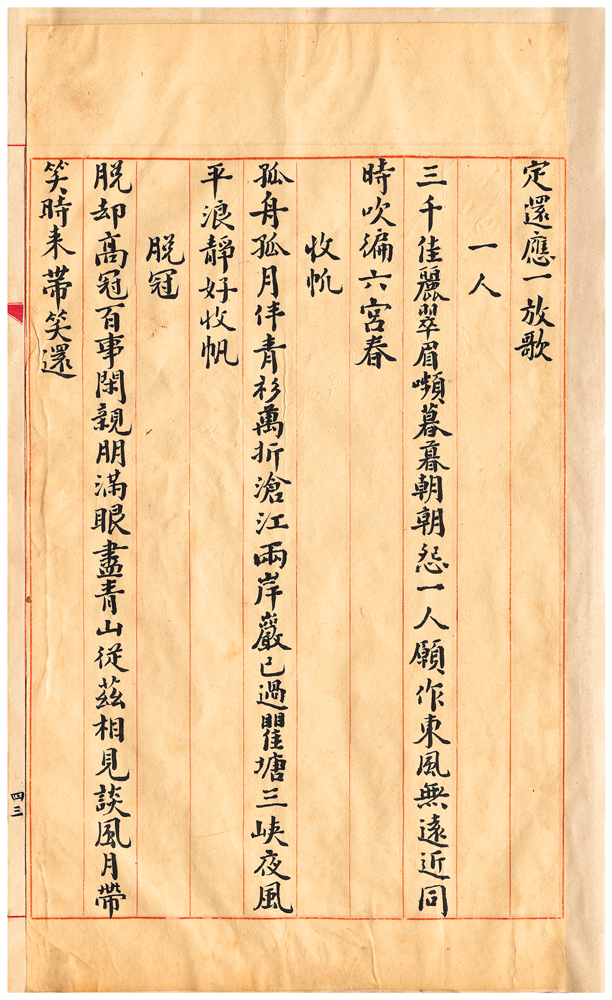 定還應一放歌
一人
三千佳麗翠眉嚬暮暮朝朝怨一人願作東風無遠近同
時吹徧六宮春
收帆
孤舟孤月伴青衫萬折滄江兩岸巖已過瞿塘三峽夜風
平浪靜好收帆
脱冠
脱却高冠百事閑親朋滿眼盡青山從茲相見談風月帶
笑時来帶笑還
四三